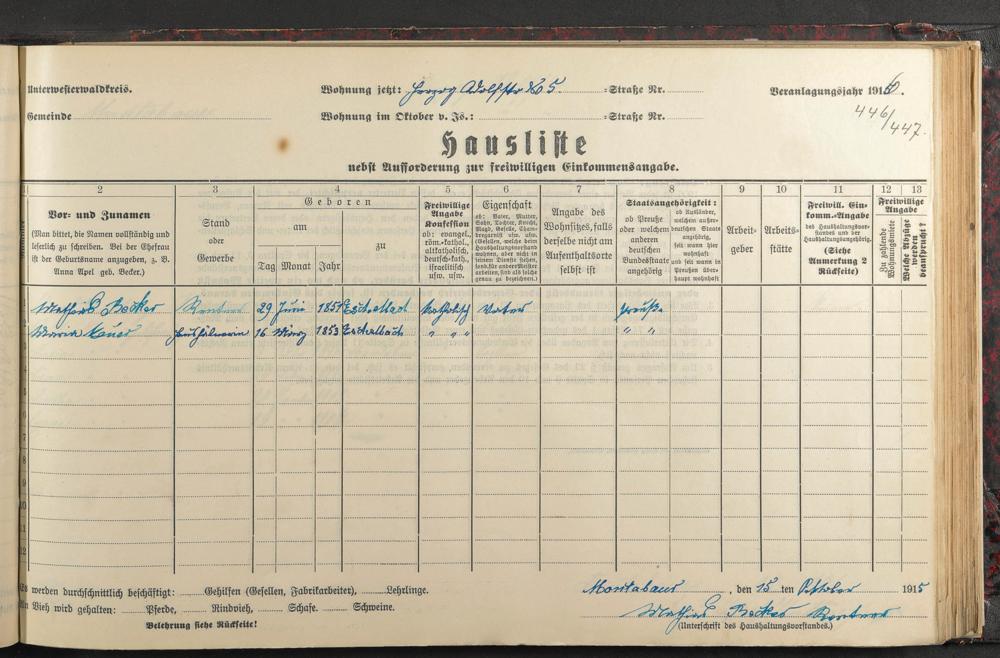 Unterwesterwaldkreis. Wohnung jetzt: Herzog Adolfstr No 5. =Straße Nr. Veranlagungsjahr 1916.
Gemeinde Wohnung im Oktober v. Js.: =Straße Nr. 446/447.
Hausliste
nebst Aufforderung zur freiwilligen Einkommensangabe.
2 3 4 5 6 7 8 9 10 11 12 13
Vor- und Zunamen
(Man bittet, die Namen vollständig und
leserlich zu schreiben. Bei der Ehefrau
ist der Geburtsname anzugeben, z. B.
Anna Apel geb. Becker.)
Stand
oder
Gewerbe
Geboren
am
zu
Tag Monat Jahr
Freiwillige
Angabe
Konfession
ob: evangel.,
röm.-kathol.,
altkatholisch,
deutsch-kath.,
israelitisch
usw. usw.
Eigenschaft
ob: Vater, Mutter,
Sohn, Tochter, Knecht,
Magd, Geselle, Cham-
bregarnist usw. usw.
(Gesellen, welche beim
Haushaltungsvorstand
wohnen, aber nicht in
seinen Diensten stehen,
sondern für andere Meister
arbeiten, sind als solche
genau zu bezeichnen.)
Angabe des
Wohnsitzes, falls
derselbe nicht am
Aufenthaltsorte
selbst ist
Staatsangehörigkeit:
ob Preuße
oder welchem
anderen
deutschen
Bundesstaate
angehörig
ob Ausländer,
welchem außer-
deutschen Staate
angehörig,
seit wann hier
wohnhaft
und seit wann in
Preußen über-
haupt wohnhaft
Arbeit-
geber
Arbeits-
stätte
Freiwill. Ein-
komm.-Angabe
des Haushaltungsvor-
standes und der
Haushaltungsangehörig.
(Siehe
Anmerkung 2
Rückseite)
Freiwillige
Angabe
Zu zahlende
Wohnungsmiete
Welche Abzüge
werden
beansprucht?
Mathias Becker Rentner 29 Juni 1851 Eschelbach Katholisch Vater Preuße
Maria Mauer 16 März 1853 Eschelbach " " " " "
3
4
5
6
7
8
9
10
11
12
Es werden durchschnittlich beschäftigt: Gehilfen (Gesellen, Fabrikarbeiter), Lehrlinge.
An Vieh wird gehalten: Pferde, Rindvieh, Schafe. Schweine.
Belehrung siehe Rückseite!
Montabaur, den 15 ten Oktober 1915
Mathias Becker Rentner
(Unterschrift des Haushaltungsvorstandes.)